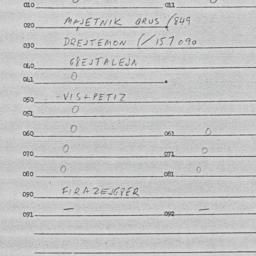 010 0 011 0
020 MAJETNIK BRUS /849
030 DREJTEMON (/157090
040 GREJTALEJN
041 0
050 -VIS+PETIZ
051 0
060 0 061 0
070 0 071 0
080 0 081 0
090 FIRAZEJGBER
091 — 092 —